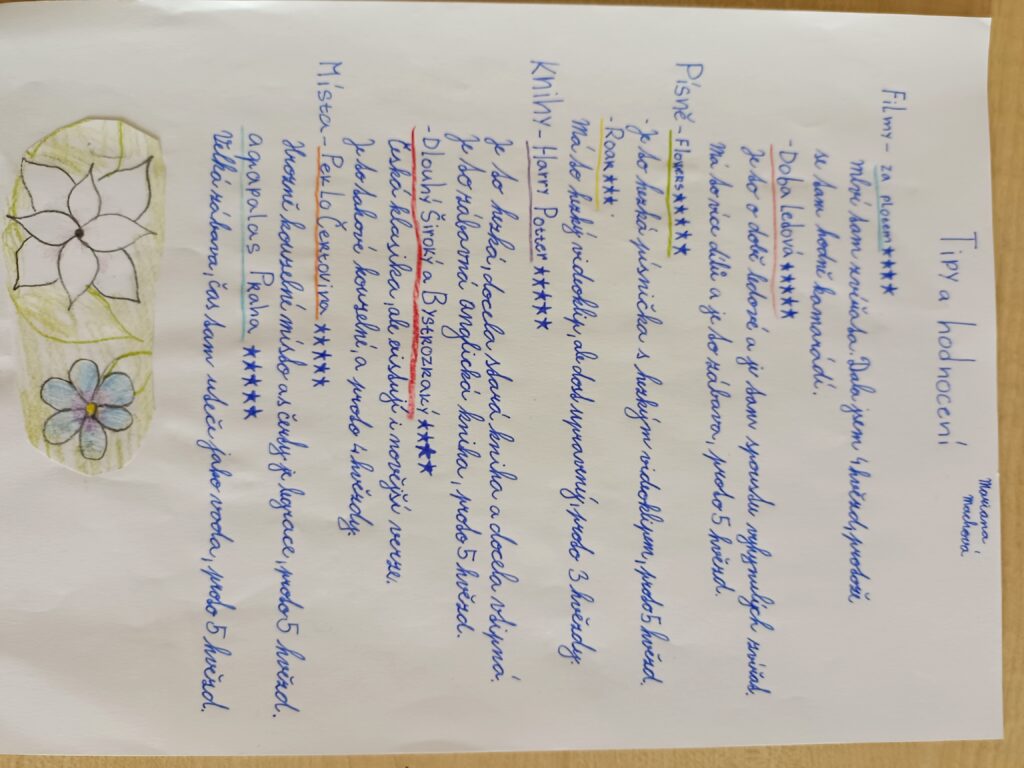 Mariana
Machova
Tipy a hodnocení
Filmy - za plotem ★★★★
Mluví tam zvířata. Dala jsem 4 hvězd, protože
se tam hodně kamarádí.
- Doba Ledová ★★★★★
Je to o době ledové a je tam spoustu vyhynulých zvířat.
Má to více dílů a je to zábava, proto 5 hvězd.
Písně - Flowers ★★★★★
- Je to hezká písnička s hezkým vidoklipem, proto 5 hvězd.
- Roar ★★★
Má to hezký vidoklip, ale dost upravený, proto 3 hvězdy.
Knihy - Harry Potter ★★★★★
Je to hezká, docela stará kniha a docela vtipná.
Je to zábavná anglická kniha, proto 5 hvězd.
- Dlouhý Široký a Bystrozraký ★★★★
Česká klasika, ale existují i novější verze.
Je to takové kouzelné, a proto 4 hvězdy.
Místa - Perlo ★★★★★
Hrozně kouzelné místo a s čerty je legrace, proto 5 hvězd.
aqapalas Praha ★★★★★
Velká zábava, čas tam uteče jako voda, proto 5 hvězd.